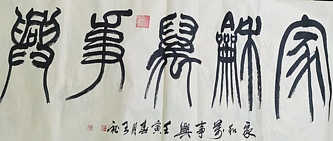 家龢萬事興
家和萬事興 壬寅 月